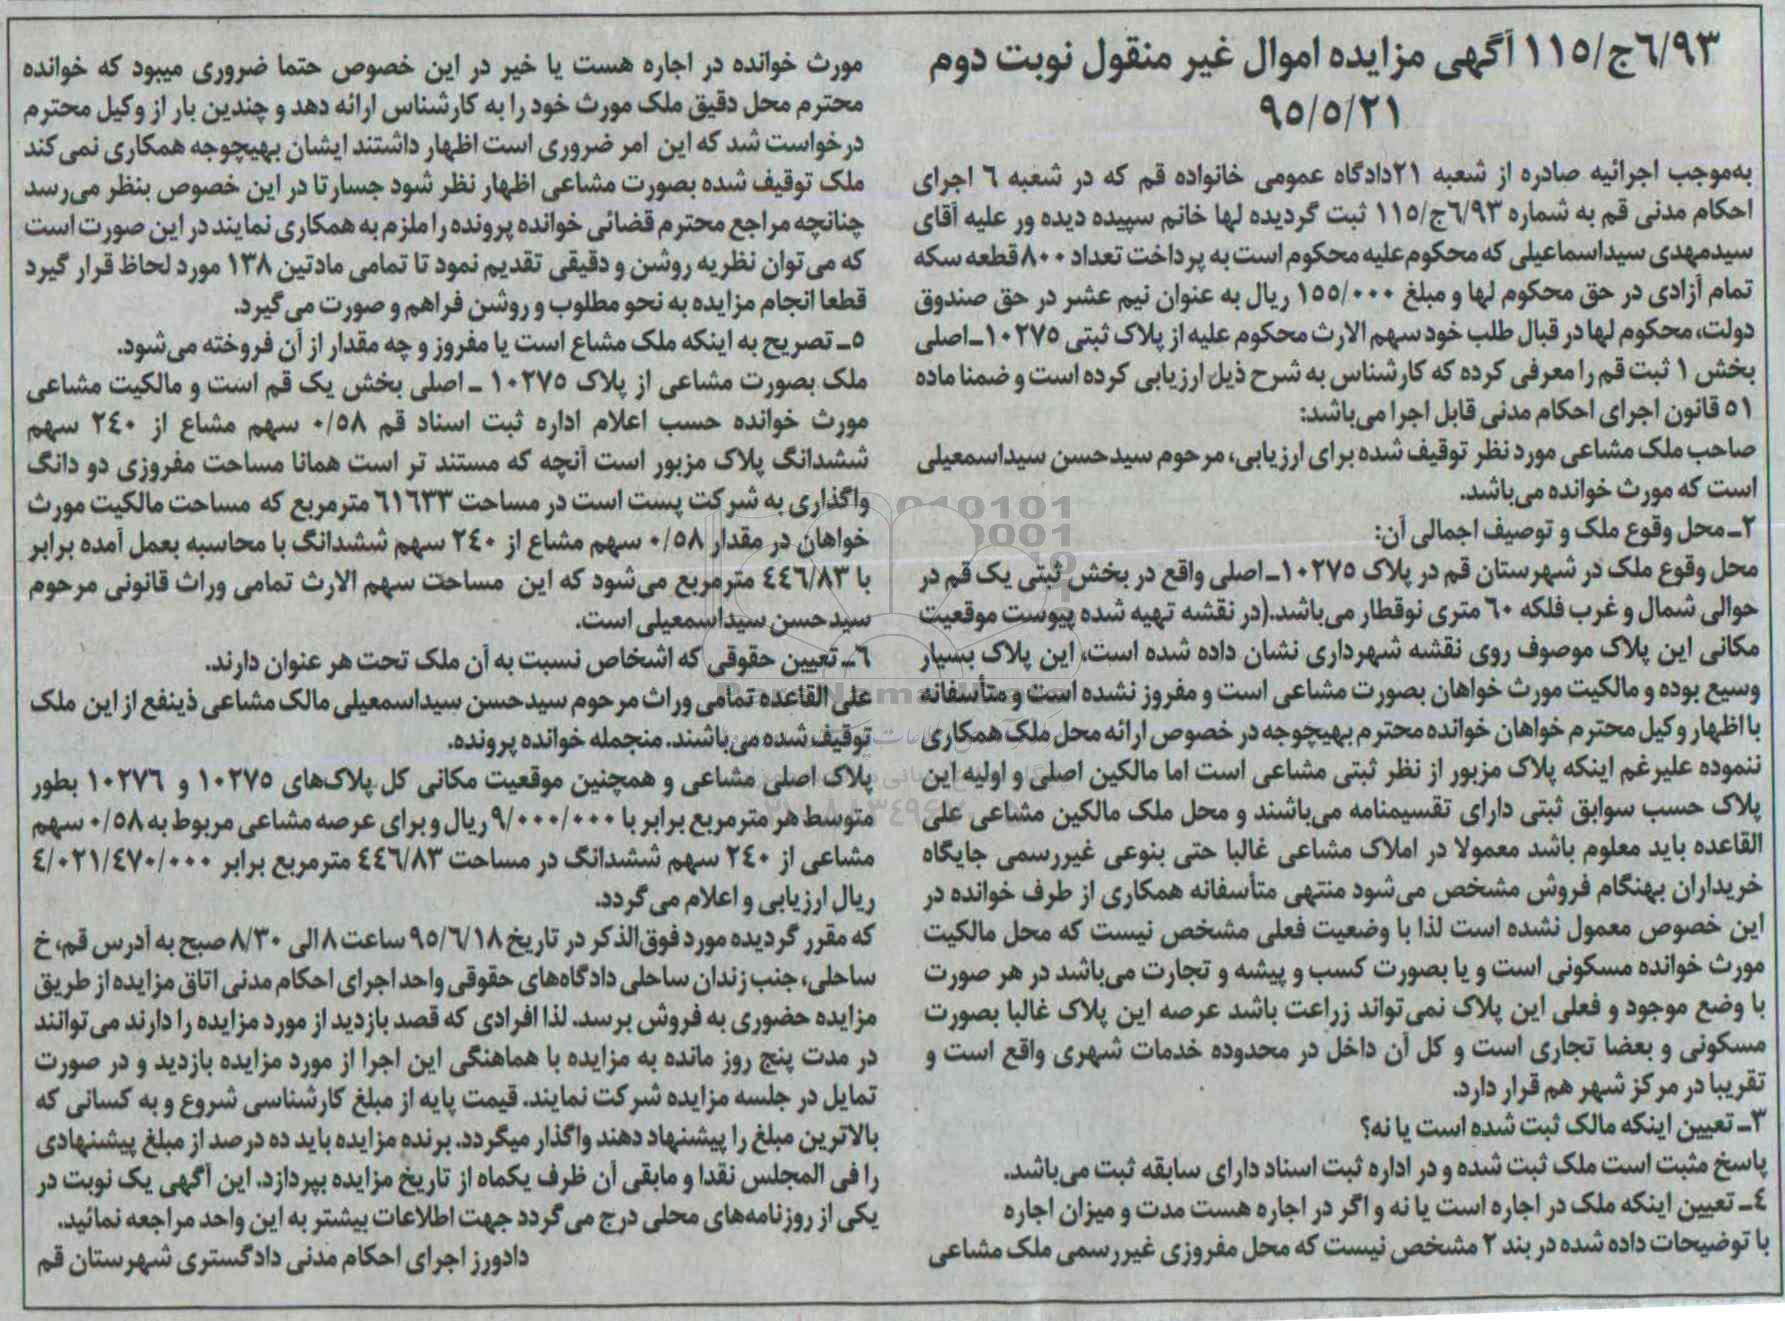 ۶/۹۳ج/۱۱۵ آگهی مزایده اموال غیر منقول نوبت دوم
۹۵/۵/۲۱
به‌موجب اجرائیه صادره از شعبه ۲۱دادگاه عمومی خانواده قم که در شعبه ۶ اجرای
احکام مدنی قم به شماره ۶/۹۳ج/۱۱۵ ثبت گردیده لها خانم سپیده دیده ور علیه آقای
سیدمهدی سیداسماعیلی که محکوم علیه محکوم است به پرداخت تعداد ۸۰۰قطعه سکه
تمام آزادی در حق محکوم لها و مبلغ ۱۵۵/۰۰۰ ریال به عنوان نیم عشر در حق صندوق
دولت، محکوم لها در قبال طلب خود سهم الارث محکوم علیه از پلاک ثبتی ۱۰۲۷۵ـ‌اصلی
بخش ۱ ثبت قم را معرفی کرده که کارشناس به شرح ذیل ارزیابی کرده است و ضمنا ماده
۵۱ قانون اجرای احکام مدنی قابل اجرا می‌باشد:
صاحب ملک مشاعی مورد نظر توقیف شده برای ارزیابی، مرحوم سیدحسن سیداسمعیلی
است که مورث خوانده می‌باشد.
۲ـ محل وقوع ملک و توصیف اجمالی آن:
محل وقوع ملک در شهرستان قم در پلاک ۱۰۲۷۵ـ اصلی واقع در بخش ثبتی یک قم در
حوالی شمال و غرب فلکه ۶۰ متری نوقطار می‌باشد.(در نقشه تهیه شده پیوست موقعیت
مکانی این پلاک موصوف روی نقشه شهرداری نشان داده شده است، این پلاک بسیار
وسیع بوده و مالکیت مورث خواهان بصورت مشاعی است و مفروز نشده است و متأسفانه
با اظهار وکیل محترم خواهان خوانده محترم بهیچوجه در خصوص ارائه محل ملک همکاری
ننموده علیرغم اینکه پلاک مزبور از نظر ثبتی مشاعی است اما مالکین اصلی و اولیه این
پلاک حسب سوابق ثبتی دارای تقسیمنامه می‌باشند و محل ملک مالکین مشاعی علی
القاعده باید معلوم باشد معمولا در املاک مشاعی غالبا حتی بنوعی غیررسمی جایگاه
خریداران بهنگام فروش مشخص می‌شود منتهی متأسفانه همکاری از طرف خوانده در
این خصوص معمول نشده است لذا با وضعیت فعلی مشخص نیست که محل مالکیت
مورث خوانده مسکونی است و یا بصورت کسب و پیشه و تجارت می‌باشد در هر صورت
با وضع موجود و فعلی این پلاک نمی‌تواند زراعت باشد عرصه این پلاک غالبا بصورت
مسکونی و بعضا تجاری است و کل آن داخل در محدوده خدمات شهری واقع است و
تقریبا در مرکز شهر هم قرار دارد.
۳ـ تعیین اینکه مالک ثبت شده است یا نه؟
پاسخ مثبت است ملک ثبت شده و در اداره ثبت اسناد دارای سابقه ثبت می‌باشد.
۴ـ تعیین اینکه ملک در اجاره است یا نه و اگر در اجاره هست مدت و میزان اجاره
با توضیحات داده شده در بند ۲ مشخص نیست که محل مفروزی غیررسمی ملک مشاعی
مورث خوانده در اجاره هست یا خیر در این خصوص حتما ضروری میبود که خوانده
محترم محل دقیق ملک مورث خود را به کارشناس ارائه دهد و چندین بار از وکیل محترم
درخواست شد که این امر ضروری است اظهار داشتند ایشان بهیچوجه همکاری نمی کند
ملک توقیف شده بصورت مشاعی اظهار نظر شود جسارتا در این خصوص بنظر می‌رسد
چنانچه مراجع محترم قضائی خوانده پرونده را ملزم به همکاری نمایند در این صورت است
که می‌توان نظریه روشن و دقیقی تقدیم نمود تا تمامی مادتین ۱۳۸ مورد لحاظ قرار گیرد
قطعا انجام مزایده به نحو مطلوب و روشن فراهم و صورت می گیرد.
۵ـ تصریح به اینکه ملک مشاع است یا مفروز و چه مقدار از آن فروخته می‌شود.
ملک بصورت مشاعی از پلاک ۱۰۲۷۵ ـ اصلی بخش یک قم است و مالکیت مشاعی
مورث خوانده حسب اعلام اداره ثبت اسناد قم ۰/۵۸ سهم مشاع از ۲۴۰ سهم
ششدانگ پلاک مزبور است آنچه که مستند تر است همانا مساحت مفروزی دو دانگ
واگذاری به شرکت پست است در مساحت ۶۱۶۳۳ مترمربع که مساحت مالکیت مورث
خواهان در مقدار ۰/۵۸ سهم مشاع از ۲۴۰ سهم ششدانگ با محاسبه بعمل آمده برابر
با ۴۴۶/۸۳ مترمربع می‌شود که این مساحت سهم الارث تمامی وراث قانونی مرحوم
سیدحسن سیداسمعیلی است.
۶ـ تعیین حقوقی که اشخاص نسبت به آن ملک تحت هر عنوان دارند.
علی القاعده تمامی وراث مرحوم سیدحسن سیداسمعیلی مالک مشاعی ذینفع از این ملک
توقیف شده می‌باشند. منجمله خوانده پرونده.
پلاک اصلی مشاعی و همچنین موقعیت مکانی کل پلاک‌های ۱۰۲۷۵ و ۱۰۲۷۶ بطور
متوسط هر مترمربع برابر با ۹/۰۰۰/۰۰۰ ریال و برای عرصه مشاعی مربوط به ۰/۵۸ سهم
مشاعی از ۲۴۰ سهم ششدانگ در مساحت ۴۴۶/۸۳ مترمربع برابر ۴/۰۲۱/۴۷۰/۰۰۰
ریال ارزیابی و اعلام می گردد.
که مقرر گردیده مورد فوق‌الذکر در تاریخ ۹۵/۶/۱۸ ساعت ۸ الی ۸/۳۰ صبح به آدرس قم، خ
ساحلی، جنب زندان ساحلی دادگاه‌های حقوقی واحد اجرای احکام مدنی اتاق مزایده از طریق
مزایده حضوری به فروش برسد. لذا افرادی که قصد بازدید از مورد مزایده را دارند می‌توانند
در مدت پنج روز مانده به مزایده با هماهنگی این اجرا از مورد مزایده بازدید و در صورت
تمایل در جلسه مزایده شرکت نمایند. قیمت پایه از مبلغ کارشناسی شروع و به کسانی که
بالاترین مبلغ را پیشنهاد دهند واگذار میگردد. برنده مزایده باید ده درصد از مبلغ پیشنهادی
را فی المجلس نقدا و مابقی آن ظرف یکماه از تاریخ مزایده بپردازد. این آگهی یک نوبت در
یکی از روزنامه‌های محلی درج می گردد جهت اطلاعات بیشتر به این واحد مراجعه نمائید.
دادورز اجرای احکام مدنی دادگستری شهرستان قم